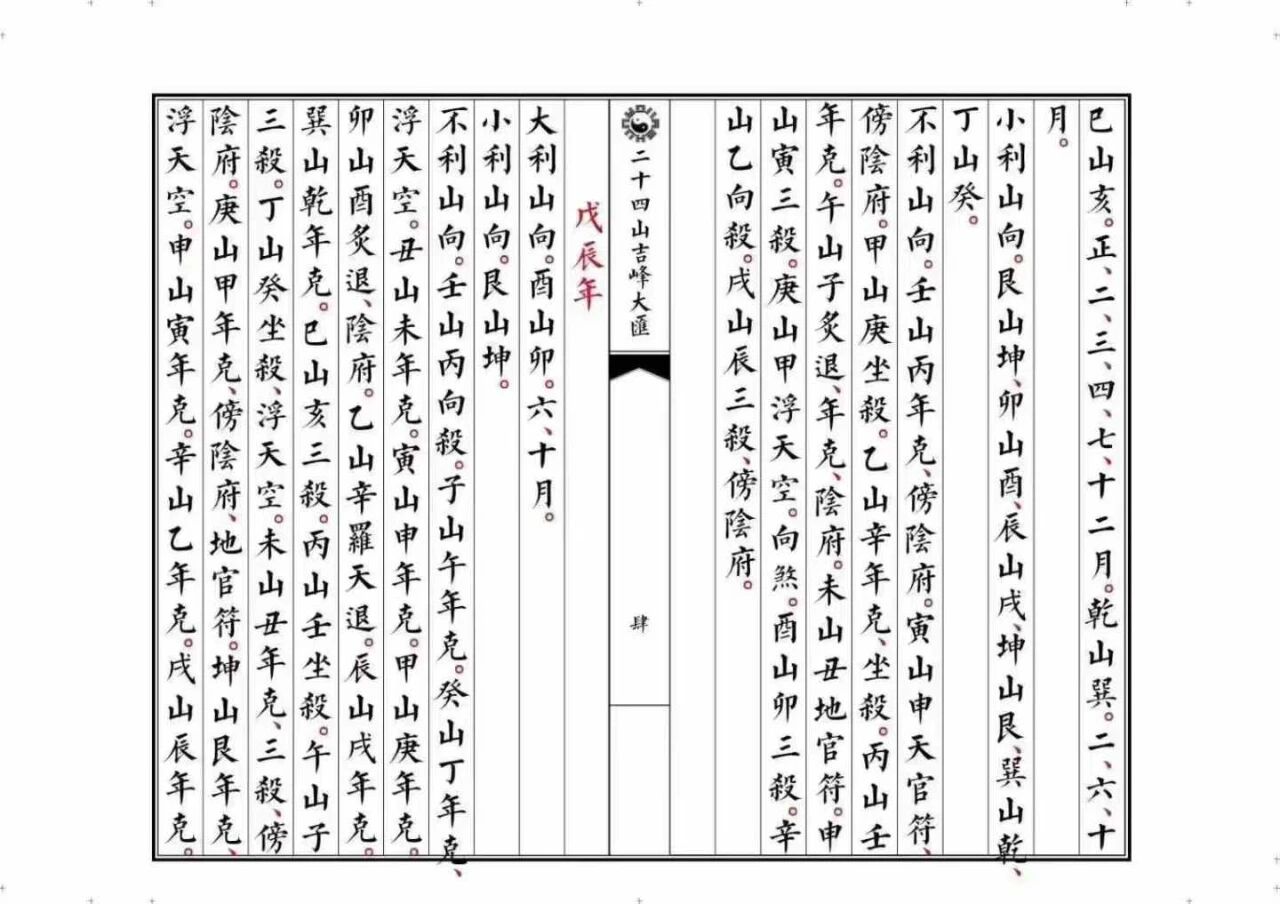 巳山亥。正、二、三、四、七、十二月。乾山巽。二、六、十
月。
小利山向。艮山坤、卯山酉、辰山戌、坤山艮、巽山乾、
丁山癸。
不利山向。壬山丙年克、傍陰府。寅山申天官符、
傍陰府。甲山庚坐殺。乙山辛年克、坐殺。丙山壬
年克。午山子炙退、年克、陰府。未山丑地官符。申
山寅三殺。庚山甲浮天空。向煞。酉山卯三殺。辛
山乙向殺。戌山辰三殺、傍陰府。
二十四山吉峰大匯
肆
戊辰年
大利山向。酉山卯。六、十月。
小利山向。艮山坤。
不利山向。壬山丙向殺。子山午年克。癸山丁年克、
浮天空。丑山未年克。寅山申年克。甲山庚年克。
卯山酉炙退、陰府。乙山辛羅天退。辰山戌年克。
巽山乾年克。巳山亥三殺。丙山壬坐殺。午山子
三殺。丁山癸坐殺、浮天空。未山丑年克、三殺、傍
陰府。庚山甲年克、傍陰府、地官符。坤山艮年克、
浮天空。申山寅年克。辛山乙年克。戌山辰年克。